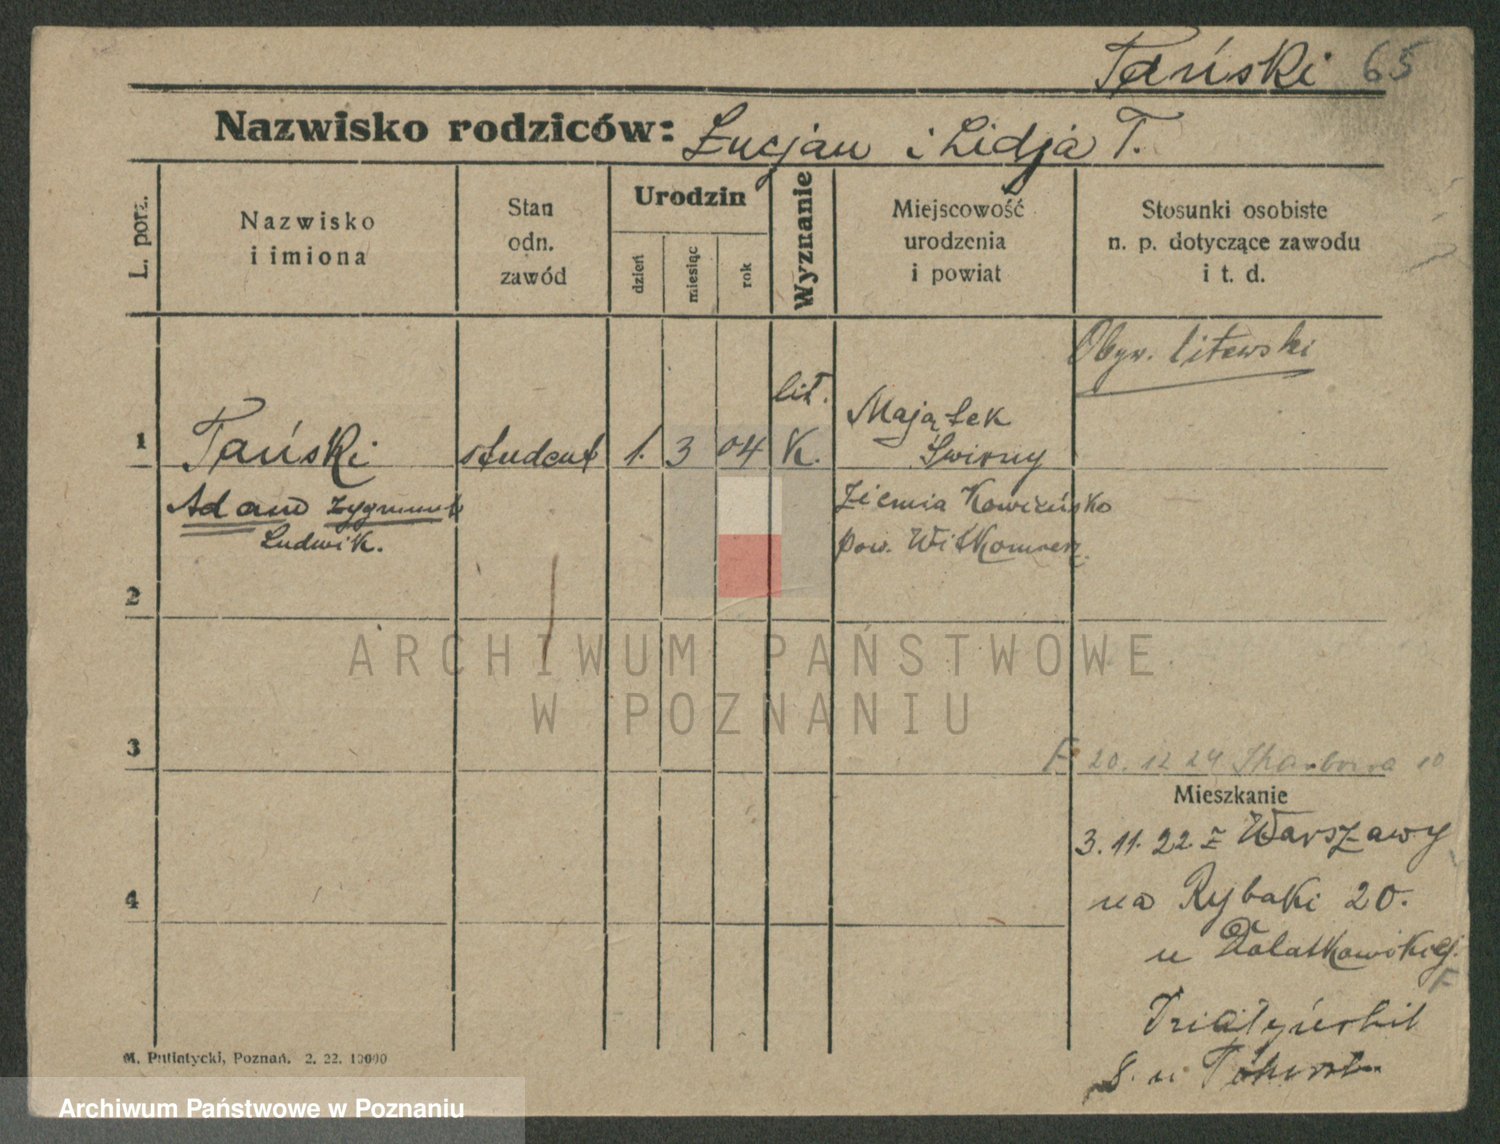 Tański 65
Nazwisko rodziców: Lucjan i Lidja T.
L. porz.
Nazwisko
i imiona
Stan
odn.
zawód
Urodzin
dzień
miesiąc
rok
Wyznanie
Miejscowość
urodzenia
i powiat
Stosunki osobiste
n. p. dotyczące zawodu
i t. d.
Obyw. litewski
1 Tański student 1. 3 04 lit. K. Majątek
Świrny
Adam Zygmunt
Ludwik.
Ziemia Kowieńsko
pow. Wiłkomierz.
2
ARCHIWUM PAŃSTWOWE
W POZNANIU
3
F 20. 12 24 Skarbowa 10
Mieszkanie
3. 11. 22 z Warszawy
4
na Rybaki 20.
u
F
M. Putiatycki, Poznań. 2. 22. 10000
Archiwum Państwowe w Poznaniu